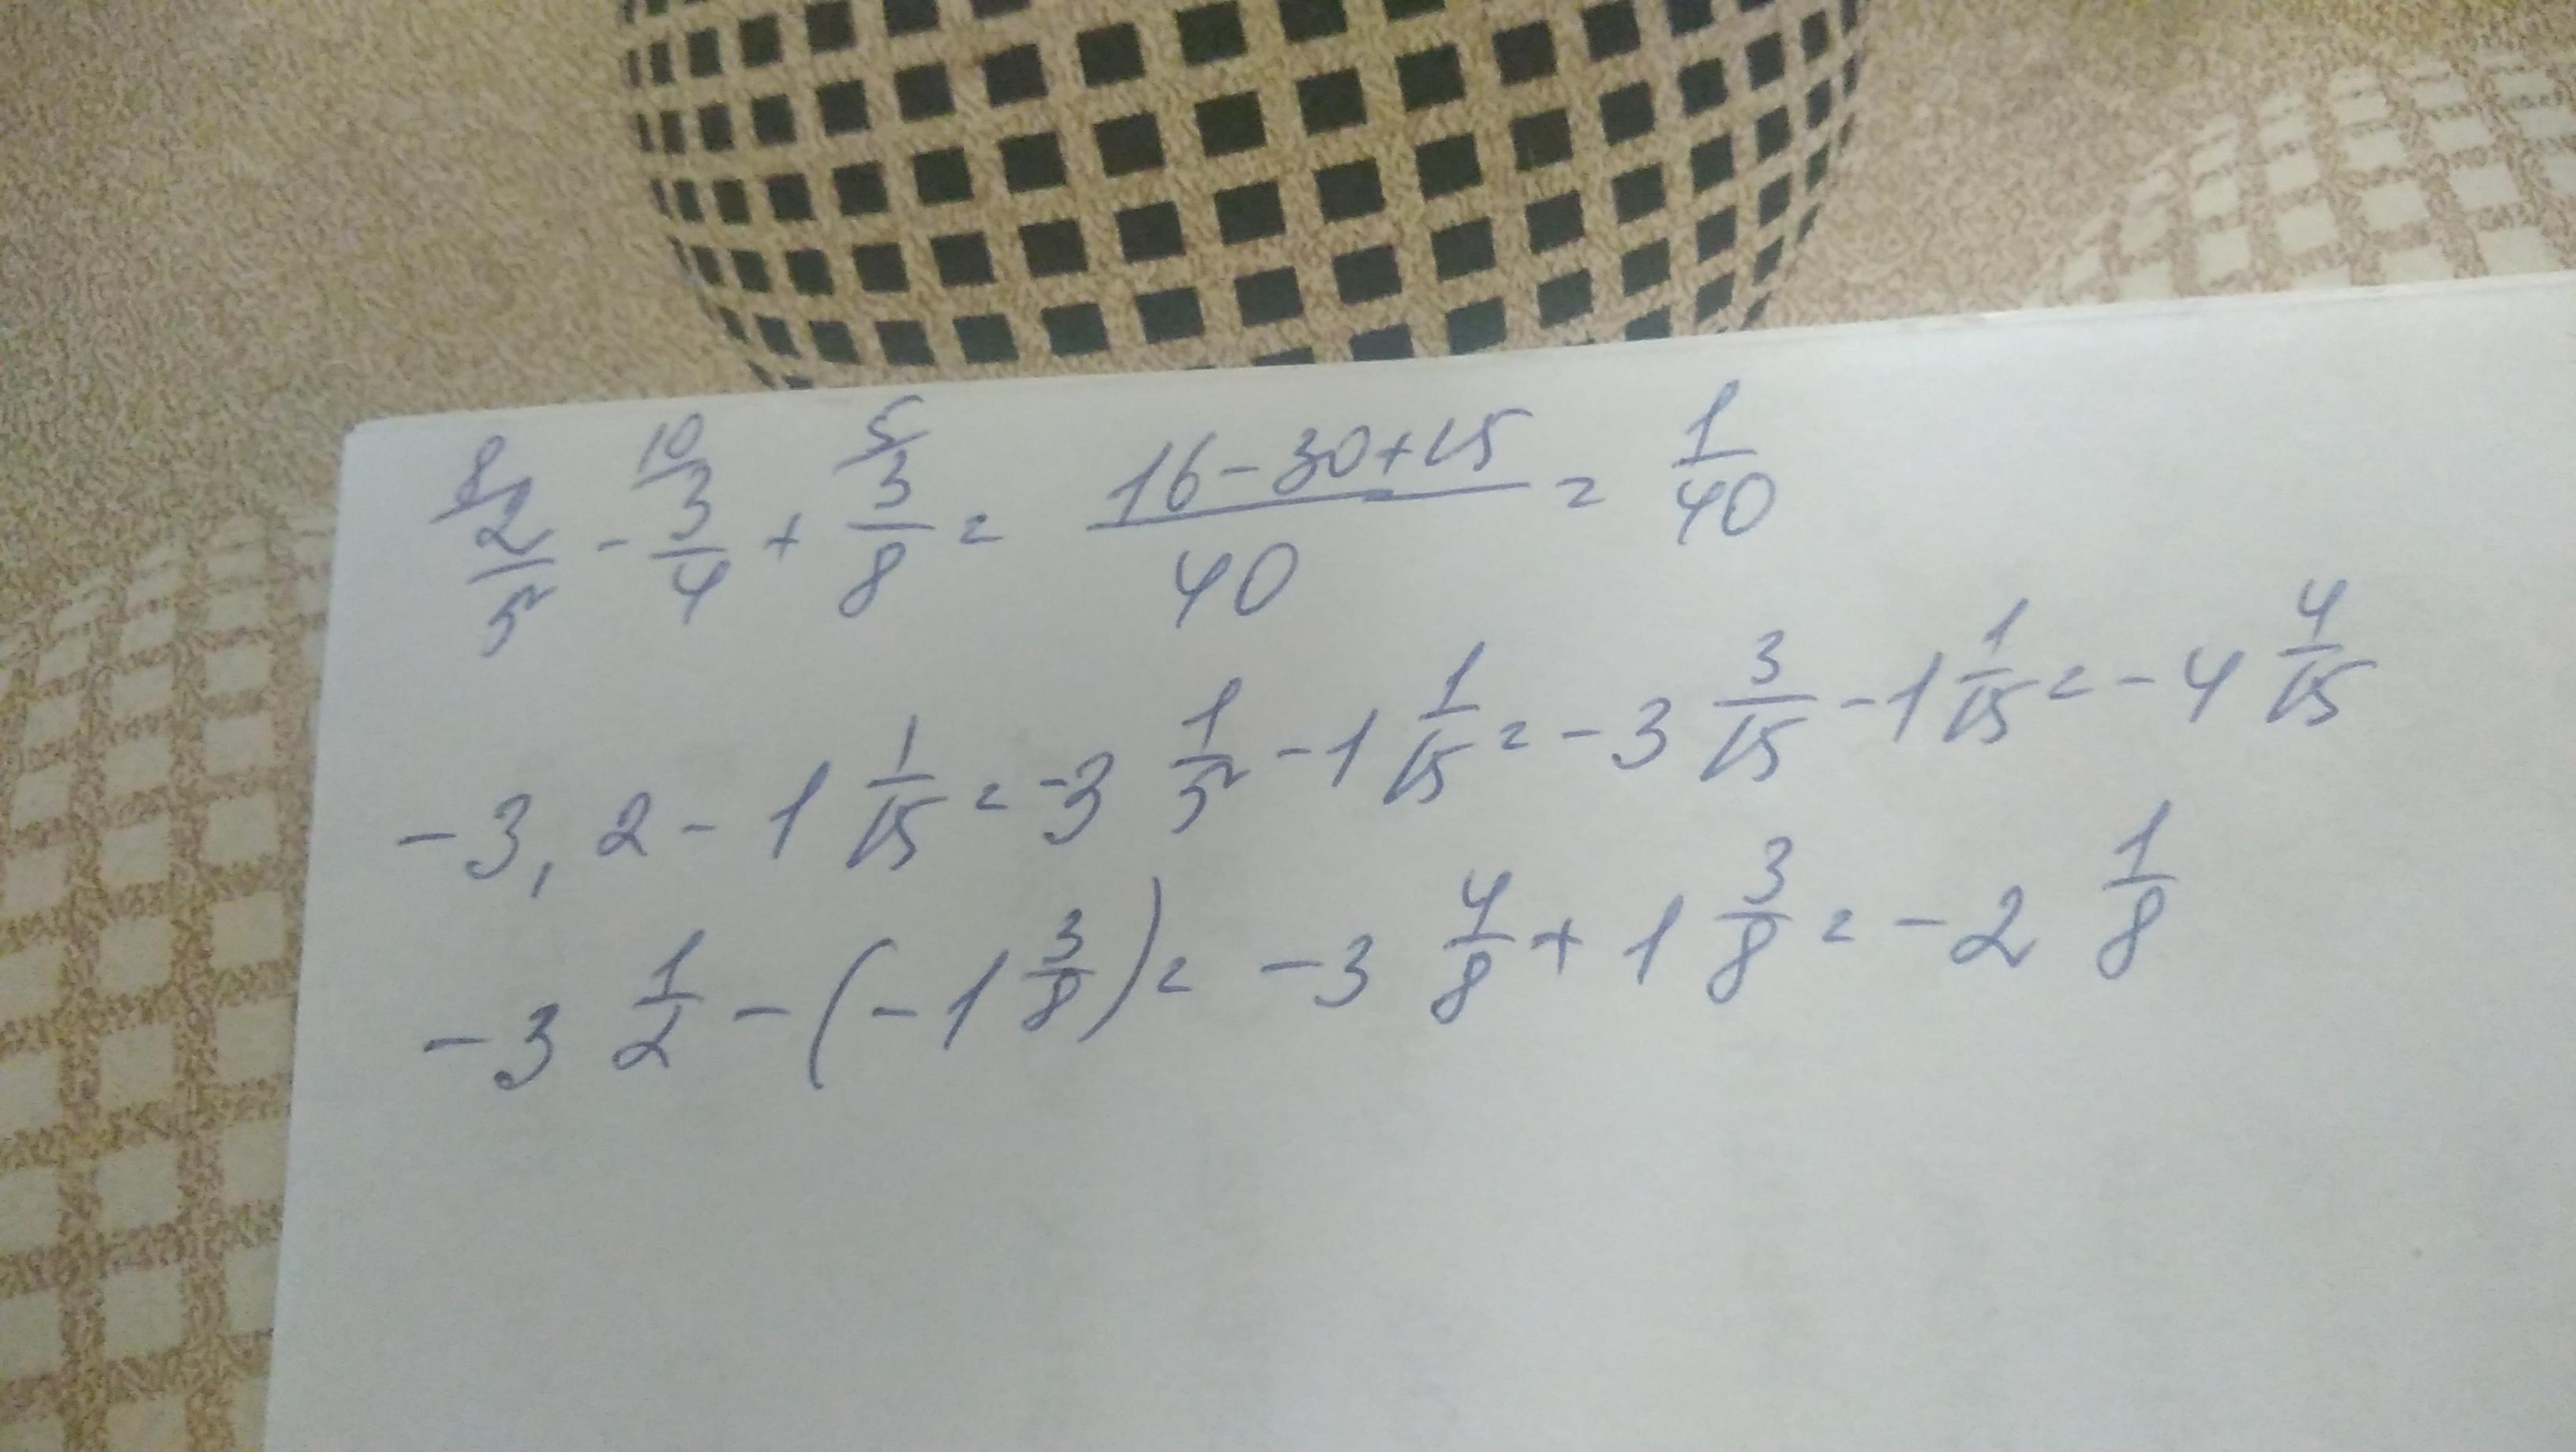 8/ 2/5 - 10/ 3/4 + 5/ 3/8 = (16-30+15)/40 = 1/40
-3,2 - 1 1/15 = -3 1/5 - 1 1/15 = -3 3/15 - 1 1/15 = -4 4/15
-3 1/2 - (-1 3/8) = -3 4/8 + 1 3/8 = -2 1/8